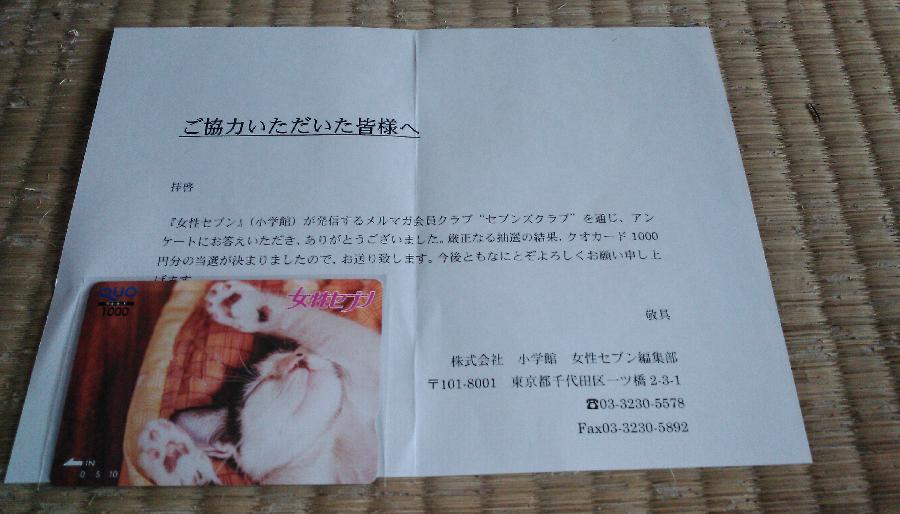 ご協力いただいた皆様へ
拝啓
『女性セブン』(小学館)が発信するメルマガ会員クラブ“セブンズクラブ”を通じ、アン
ケートにお答えいただき、ありがとうございました。厳正なる抽選の結果、クオカード1000
円分の当選が決まりましたので、お送り致します。今後ともなにとぞよろしくお願い申し上
げます
敬具
株式会社 小学館 女性セブン編集部
〒101-8001 東京都千代田区一ツ橋2-3-1
☎03-3230-5578
Fax03-3230-5892
QUO
1000
女性セブン
IN
0 5 10